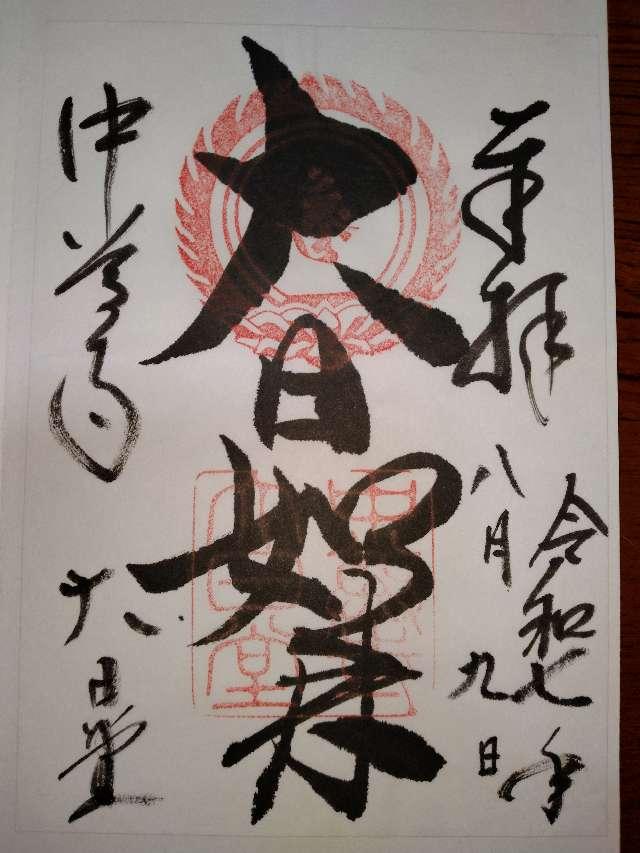 奉拝
令和七年
八月九日
大日如来
中尊寺 大日堂